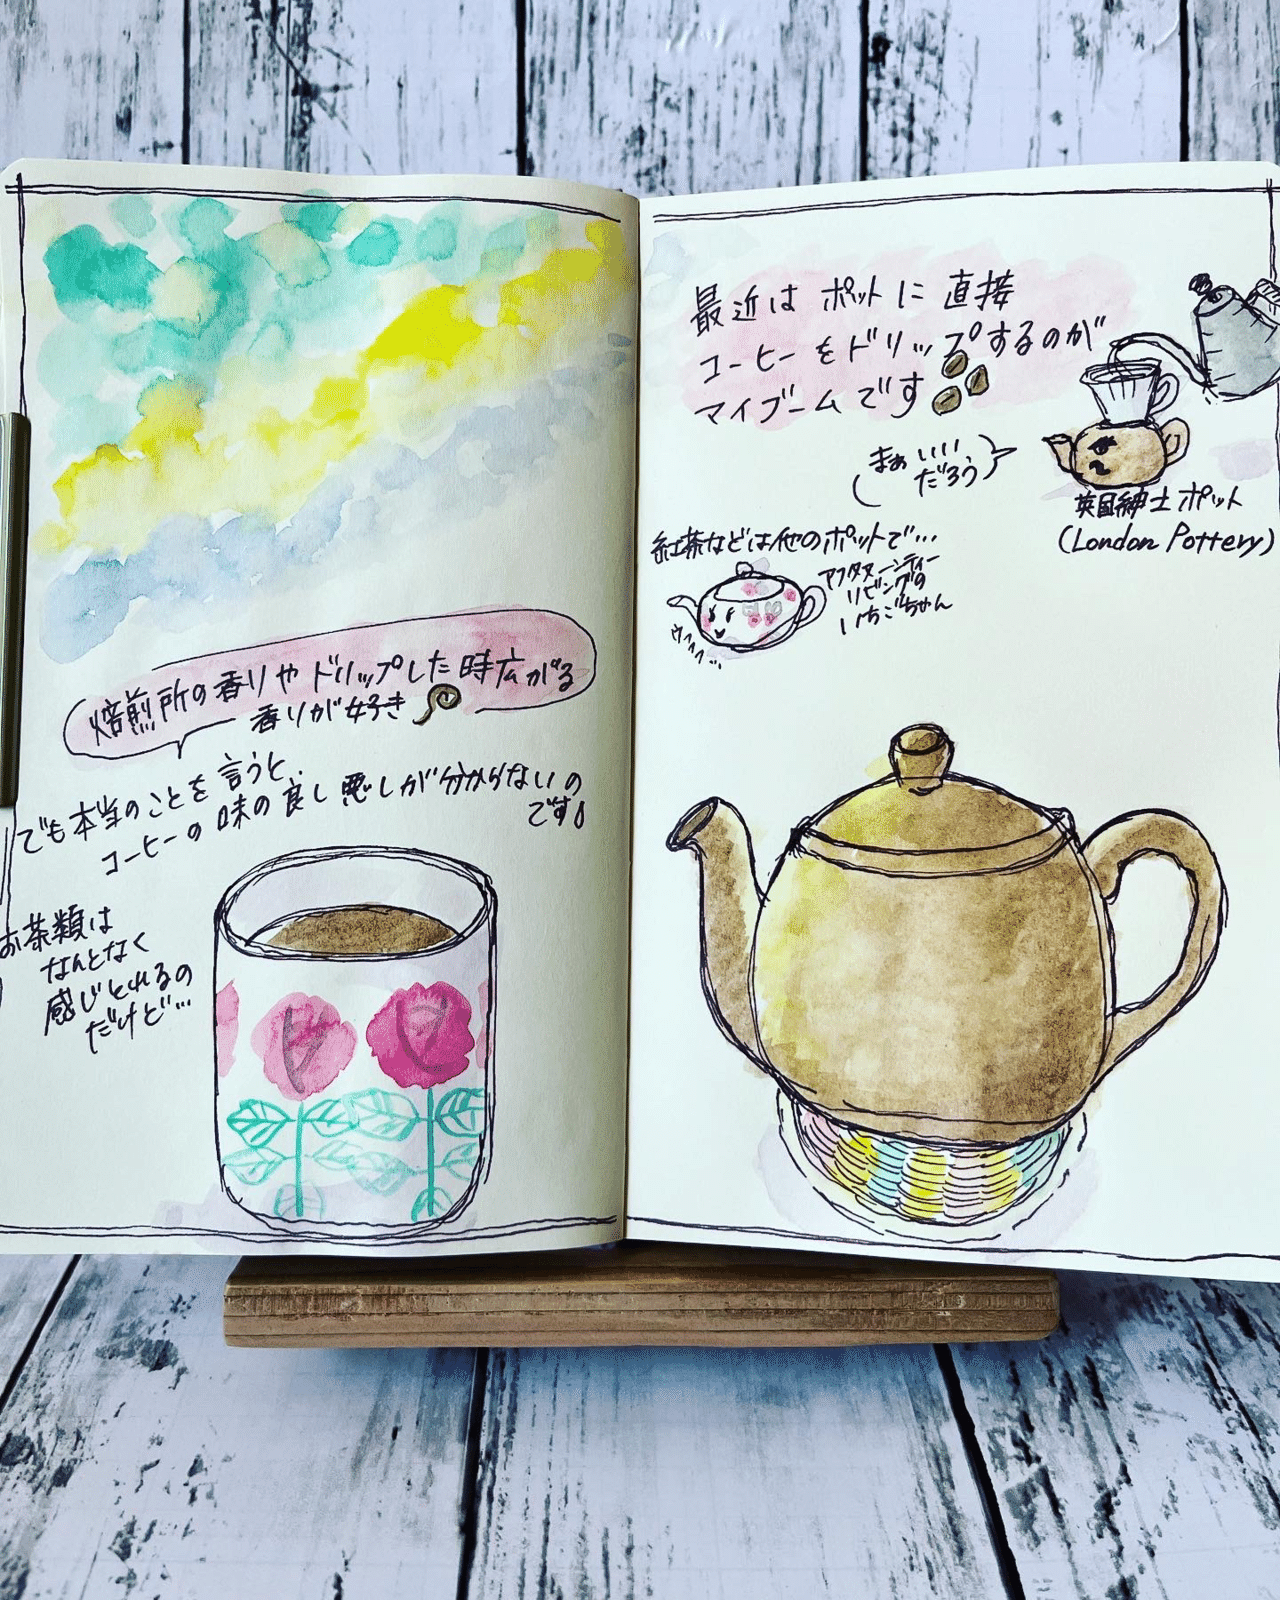 焙煎所の香りやドリップした時広がる
香りが好き
でも本当のことを言うと、
コーヒーの味の良し悪しが分からないの
です
お茶類は
なんとなく
感じとれるの
だけど…
最近はポットに直接
コーヒーをドリップするのが
マイブームです
まぁいい
だろう
英国紳士ポット
(London Pottery)
紅茶などは他のポットで…
アフタヌーンティー
リビングの
いちごちゃん
ウフフフ…